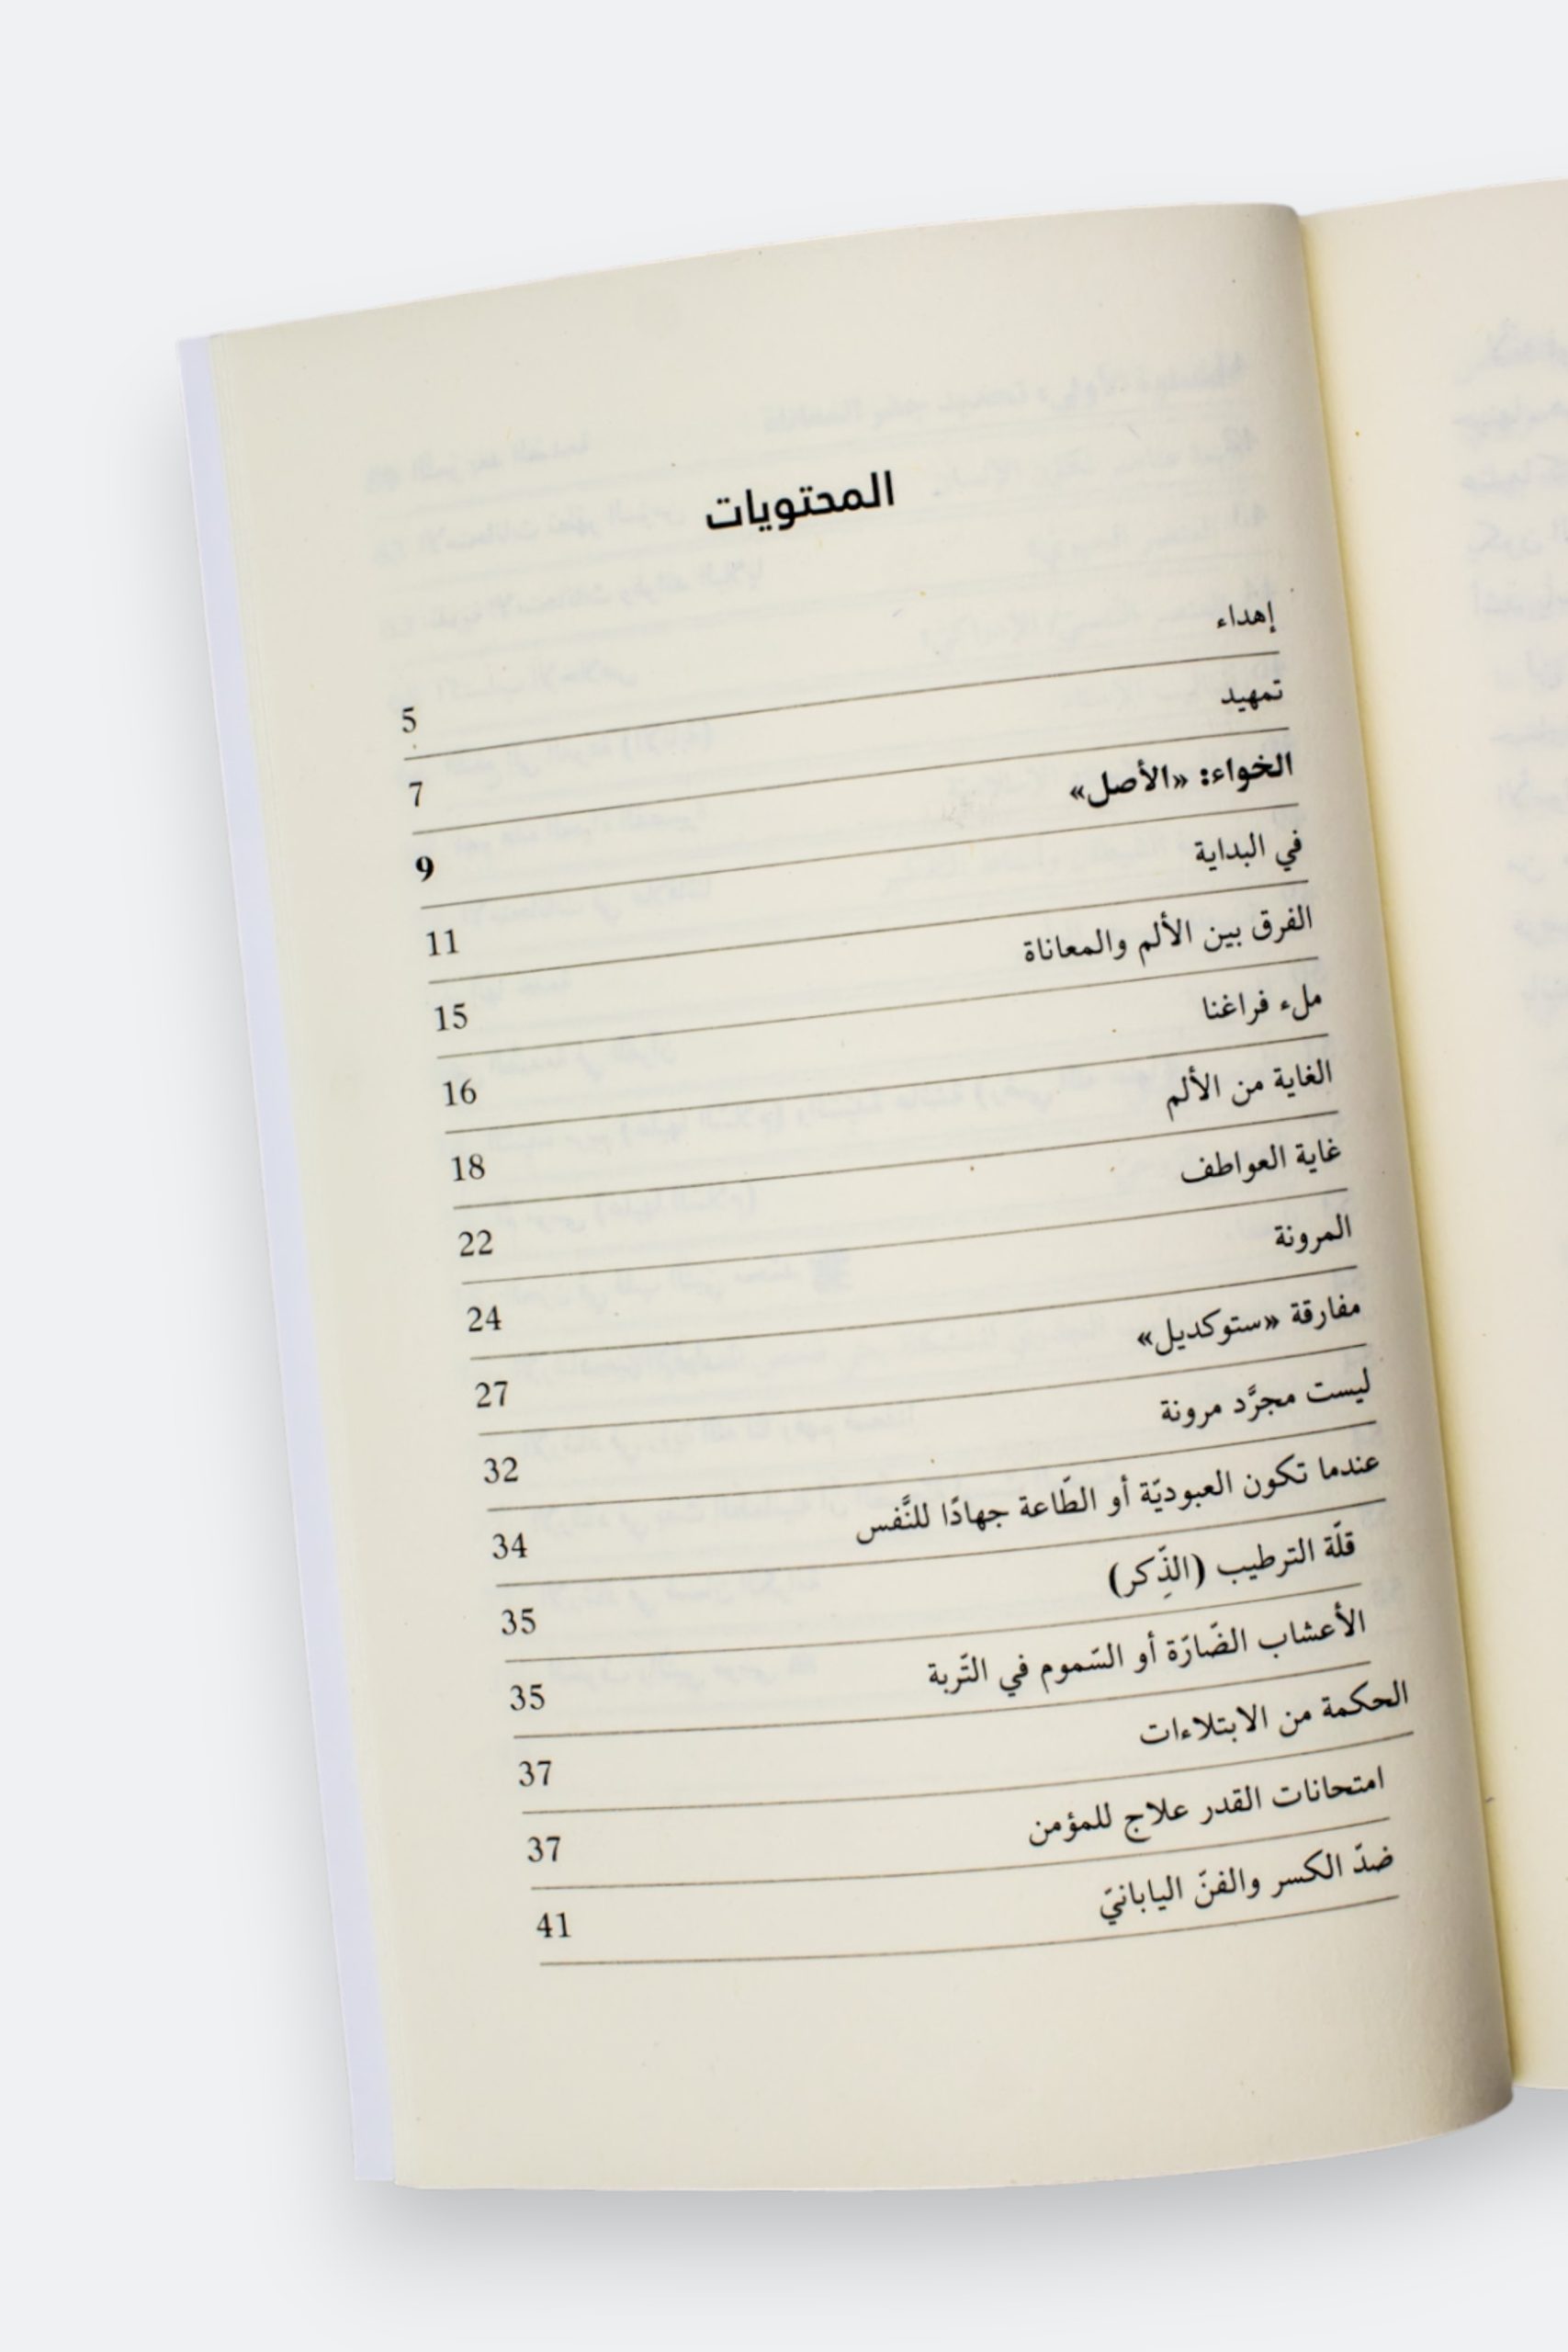 المحتويات
إهداء 5
تمهيد 7
الخواء: «الأصل» 9
في البداية 11
الفرق بين الألم والمعاناة 15
ملء فراغنا 16
الغاية من الألم 18
غاية العواطف 22
المرونة 24
مفارقة «ستوكديل» 27
ليست مجرَّد مرونة 32
عندما تكون العبوديّة أو الطّاعة جهادًا للنَّفس 34
قلّة الترطيب (الذِّكر) 35
الأعشاب الضّارّة أو السّموم في التّربة 35
الحكمة من الابتلاءات 37
امتحانات القدر علاج للمؤمن 37
ضدّ الكسر والفنّ اليابانيّ 41